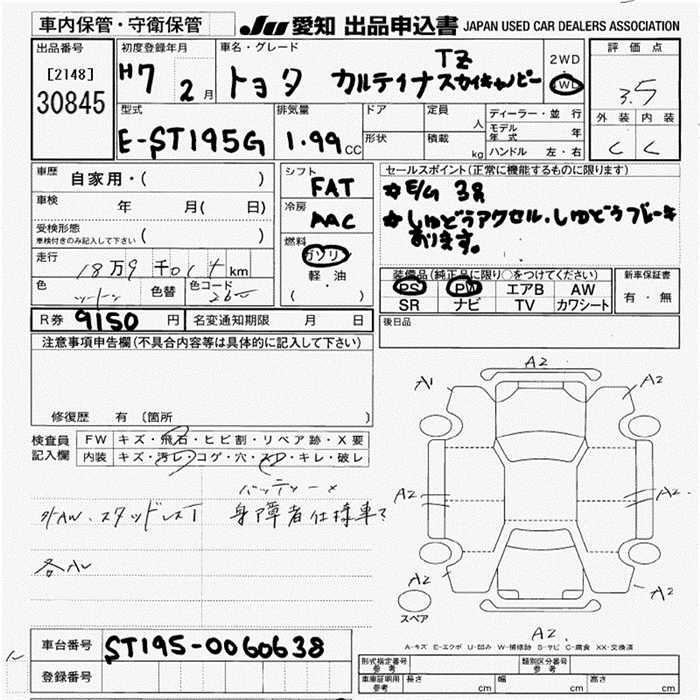 車内保管・守衛保管
JU 愛知 出品申込書 JAPAN USED CAR DEALERS ASSOCIATION
出品番号
[2148]
30845
初度登録年月
H7 2月
車名・グレード
トヨタ カルディナスカイキャノピー TZ
2WD
4WD
評価点
3.5
外装 内装
C C
型式
E-ST195G
排気量
1.99 CC
ドア
形状
定員 人
積載 kg
ディーラー・並行
モデル年式 年
ハンドル 左・右
車歴 自家用・( )
車検 年 月( 日)
受検形態
車検付きのみ記入して下さい ( )
走行 18万9千014km
色 ツートン 色替 色コード 26
シフト
FAT
冷房
AAC
燃料
ガソリン
軽油
( ・ )
セールスポイント(正常に機能するものに限ります)
☆E/G 3S
☆しゅどうアクセル・しゅどうブレーキ
おります。
装備品(純正品に限り○をつけてください)
PS PW エアB AW
SR ナビ TV カワシート
新車保証書
有・無
R券 9150円 名変通知期限 月 日
後日品
注意事項申告欄(不具合内容等は具体的に記入して下さい)
修復歴 有 〔箇所 〕
検査員記入欄
FW キズ・飛石・ヒビ割・リペア跡・X要
内装 キズ・汚れ・コゲ・穴・スレ・キレ・破レ
バッテリー×
外AW・スタッドレスT 身障者仕様車
A1 A2 A2
A2 A2
A2 A2
スペア
A2
A-キズ E-エクボ U-凹み W-補修跡 S-サビ C-腐食 XX-交換済
車台番号 ST195-0060638
登録番号
形式指定番号 参考
類別区分番号 参考
車庫証明用 参考 長さ cm 幅 cm 高さ cm